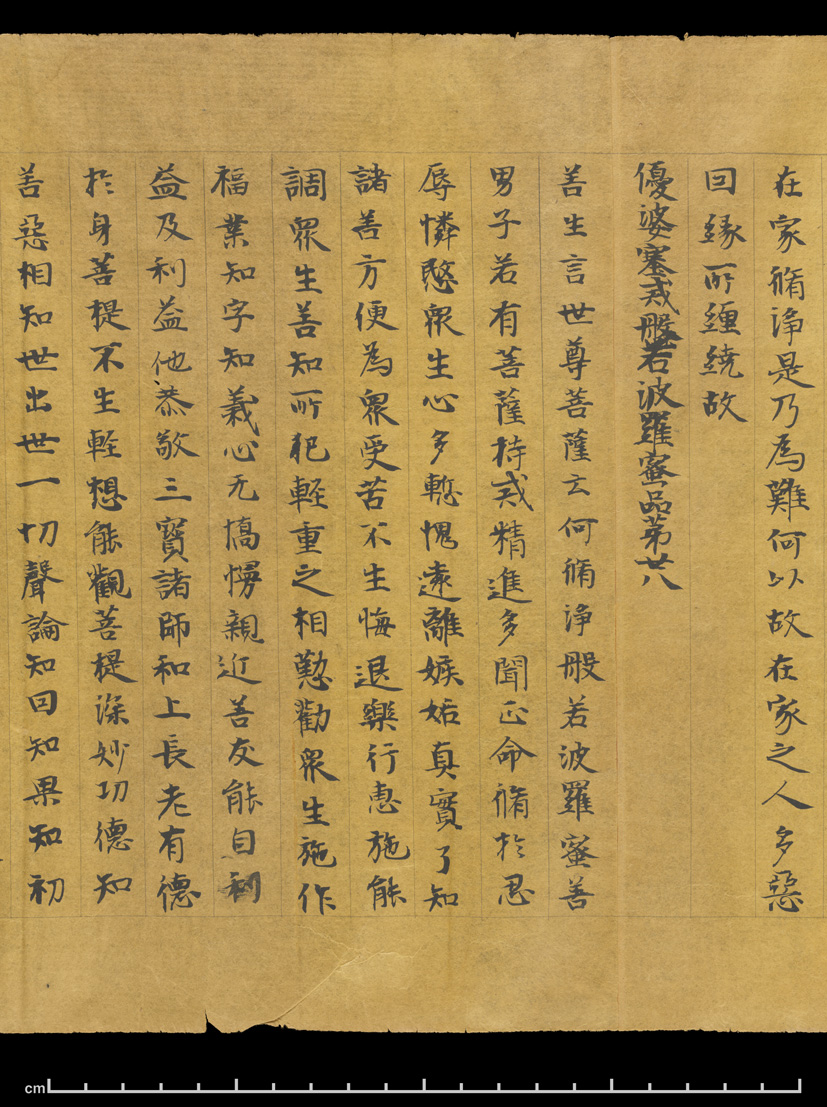 在家脩淨是乃爲難何以故在家之人多惡
回緣所纏繞故
優婆塞戒般若波羅蜜品第廿八
善生言世尊菩薩云何脩淨般若波羅蜜善
男子若有菩薩持戒精進多聞正命脩於忍
辱憐愍衆生心多慙愧遠離嫉妬真實了知
諸善方便為衆受苦不生悔退樂行惠施能
調衆生善知所犯輕重之相懃勸衆生施作
福業知字知義心无憍慢親近善友能自利
益及利益他恭敬三寶諸師和上長老有德
於身菩提不生輕想能觀菩提深妙功德知
善惡相知世出世一切聲論知回知果知初
cm